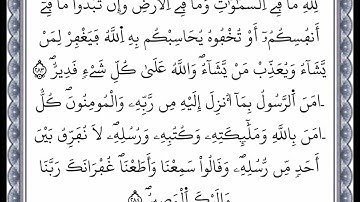 لِلَّهِ مَا فِي السَّمَٰوَٰتِ وَمَا فِي الْأَرْضِ وَإِن تُبْدُوا۟ مَا فِىٓ
أَنفُسِكُمْ أَوْ تُخْفُوهُ يُحَاسِبْكُم بِهِ اللَّهُ فَيَغْفِرُ لِمَن
يَشَآءُ وَيُعَذِّبُ مَن يَشَآءُ وَاللَّهُ عَلَىٰ كُلِّ شَىْءٍ قَدِيرٌ ﴿٢٨٤﴾
ءَامَنَ الرَّسُولُ بِمَآ أُنزِلَ إِلَيْهِ مِن رَّبِّهِ وَالْمُؤْمِنُونَ كُلٌّ
ءَامَنَ بِاللَّهِ وَمَلَٰٓئِكَتِهِ وَكُتُبِهِ وَرُسُلِهِ لَا نُفَرِّقُ بَيْنَ
أَحَدٍ مِّن رُّسُلِهِ وَقَالُوا۟ سَمِعْنَا وَأَطَعْنَا غُفْرَانَكَ رَبَّنَا
وَإِلَيْكَ الْمَصِيرُ ﴿٢٨٥﴾